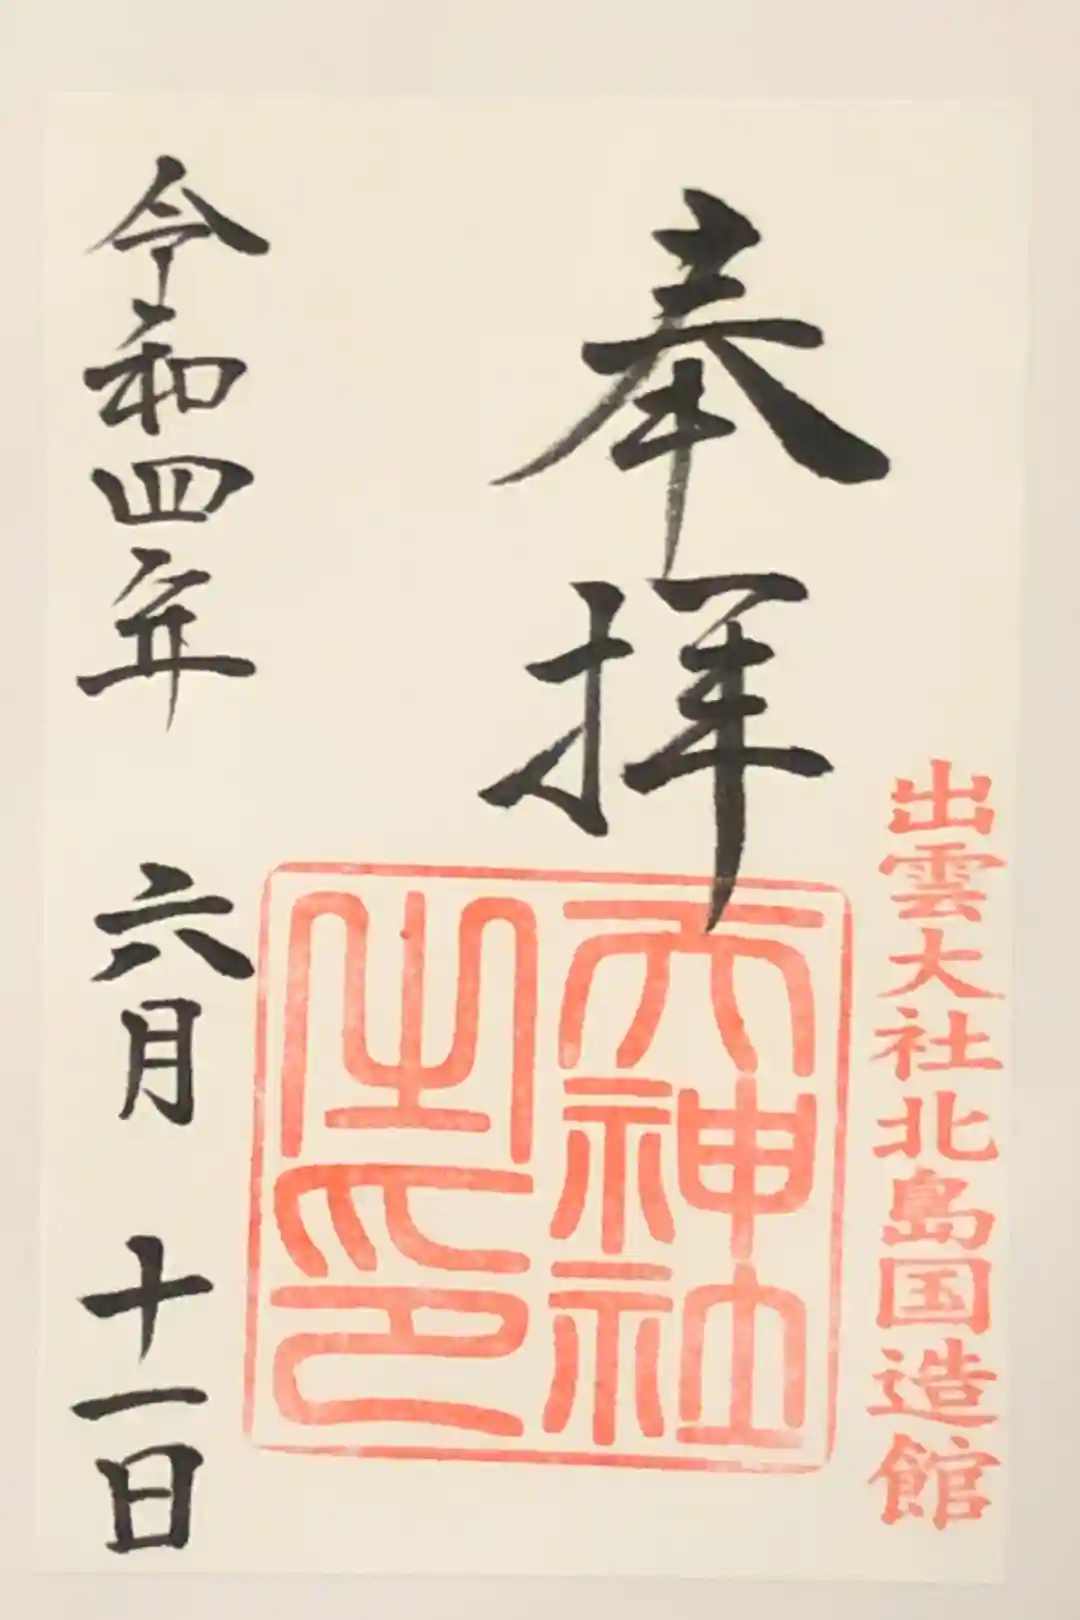 奉拝
出雲大社北島国造館
天神社之印
令和四年 六月 十一日